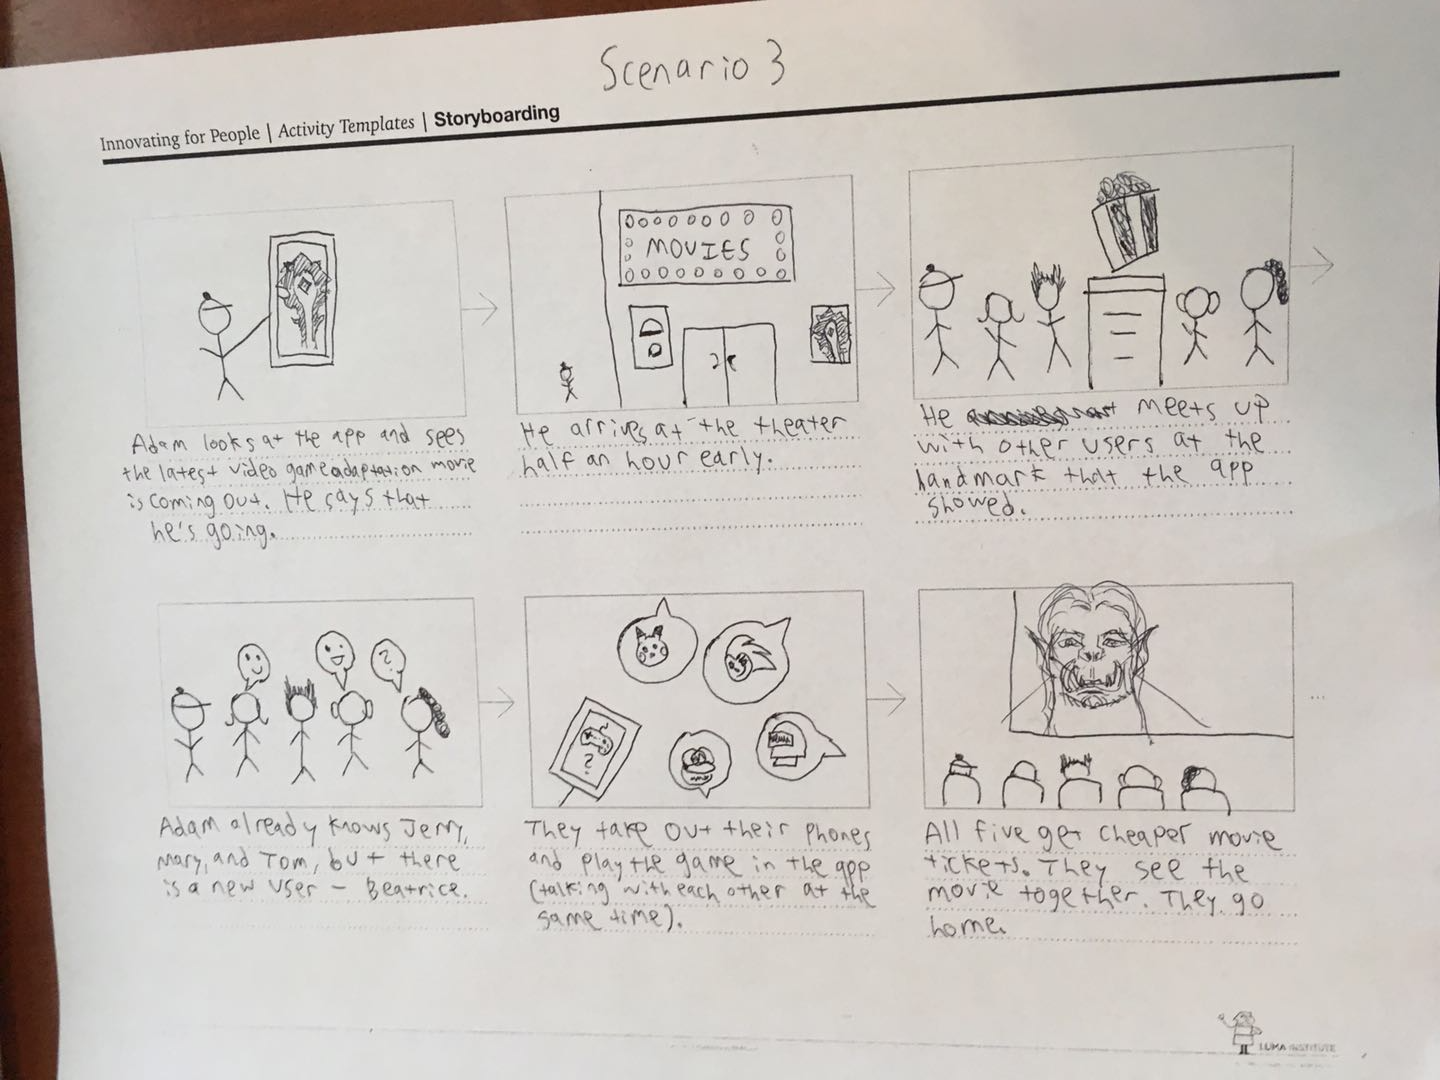 Scenario 3
Innovating for People | Activity Templates | Storyboarding
MOVIES
Adam looks at the app and sees
the latest video game adaptation movie
is coming out. He says that
he's going.
He arrives at the theater
half an hour early.
He meets up
with other users at the
landmark that the app
showed.
?
Adam already knows Jerry,
Mary, and Tom, but there
is a new user - Beatrice.
?
They take out their phones
and play the game in the app
(talking with each other at the
same time).
All five get cheaper movie
tickets. They see the
movie together. They go
home.
...
LUMA INSTITUTE